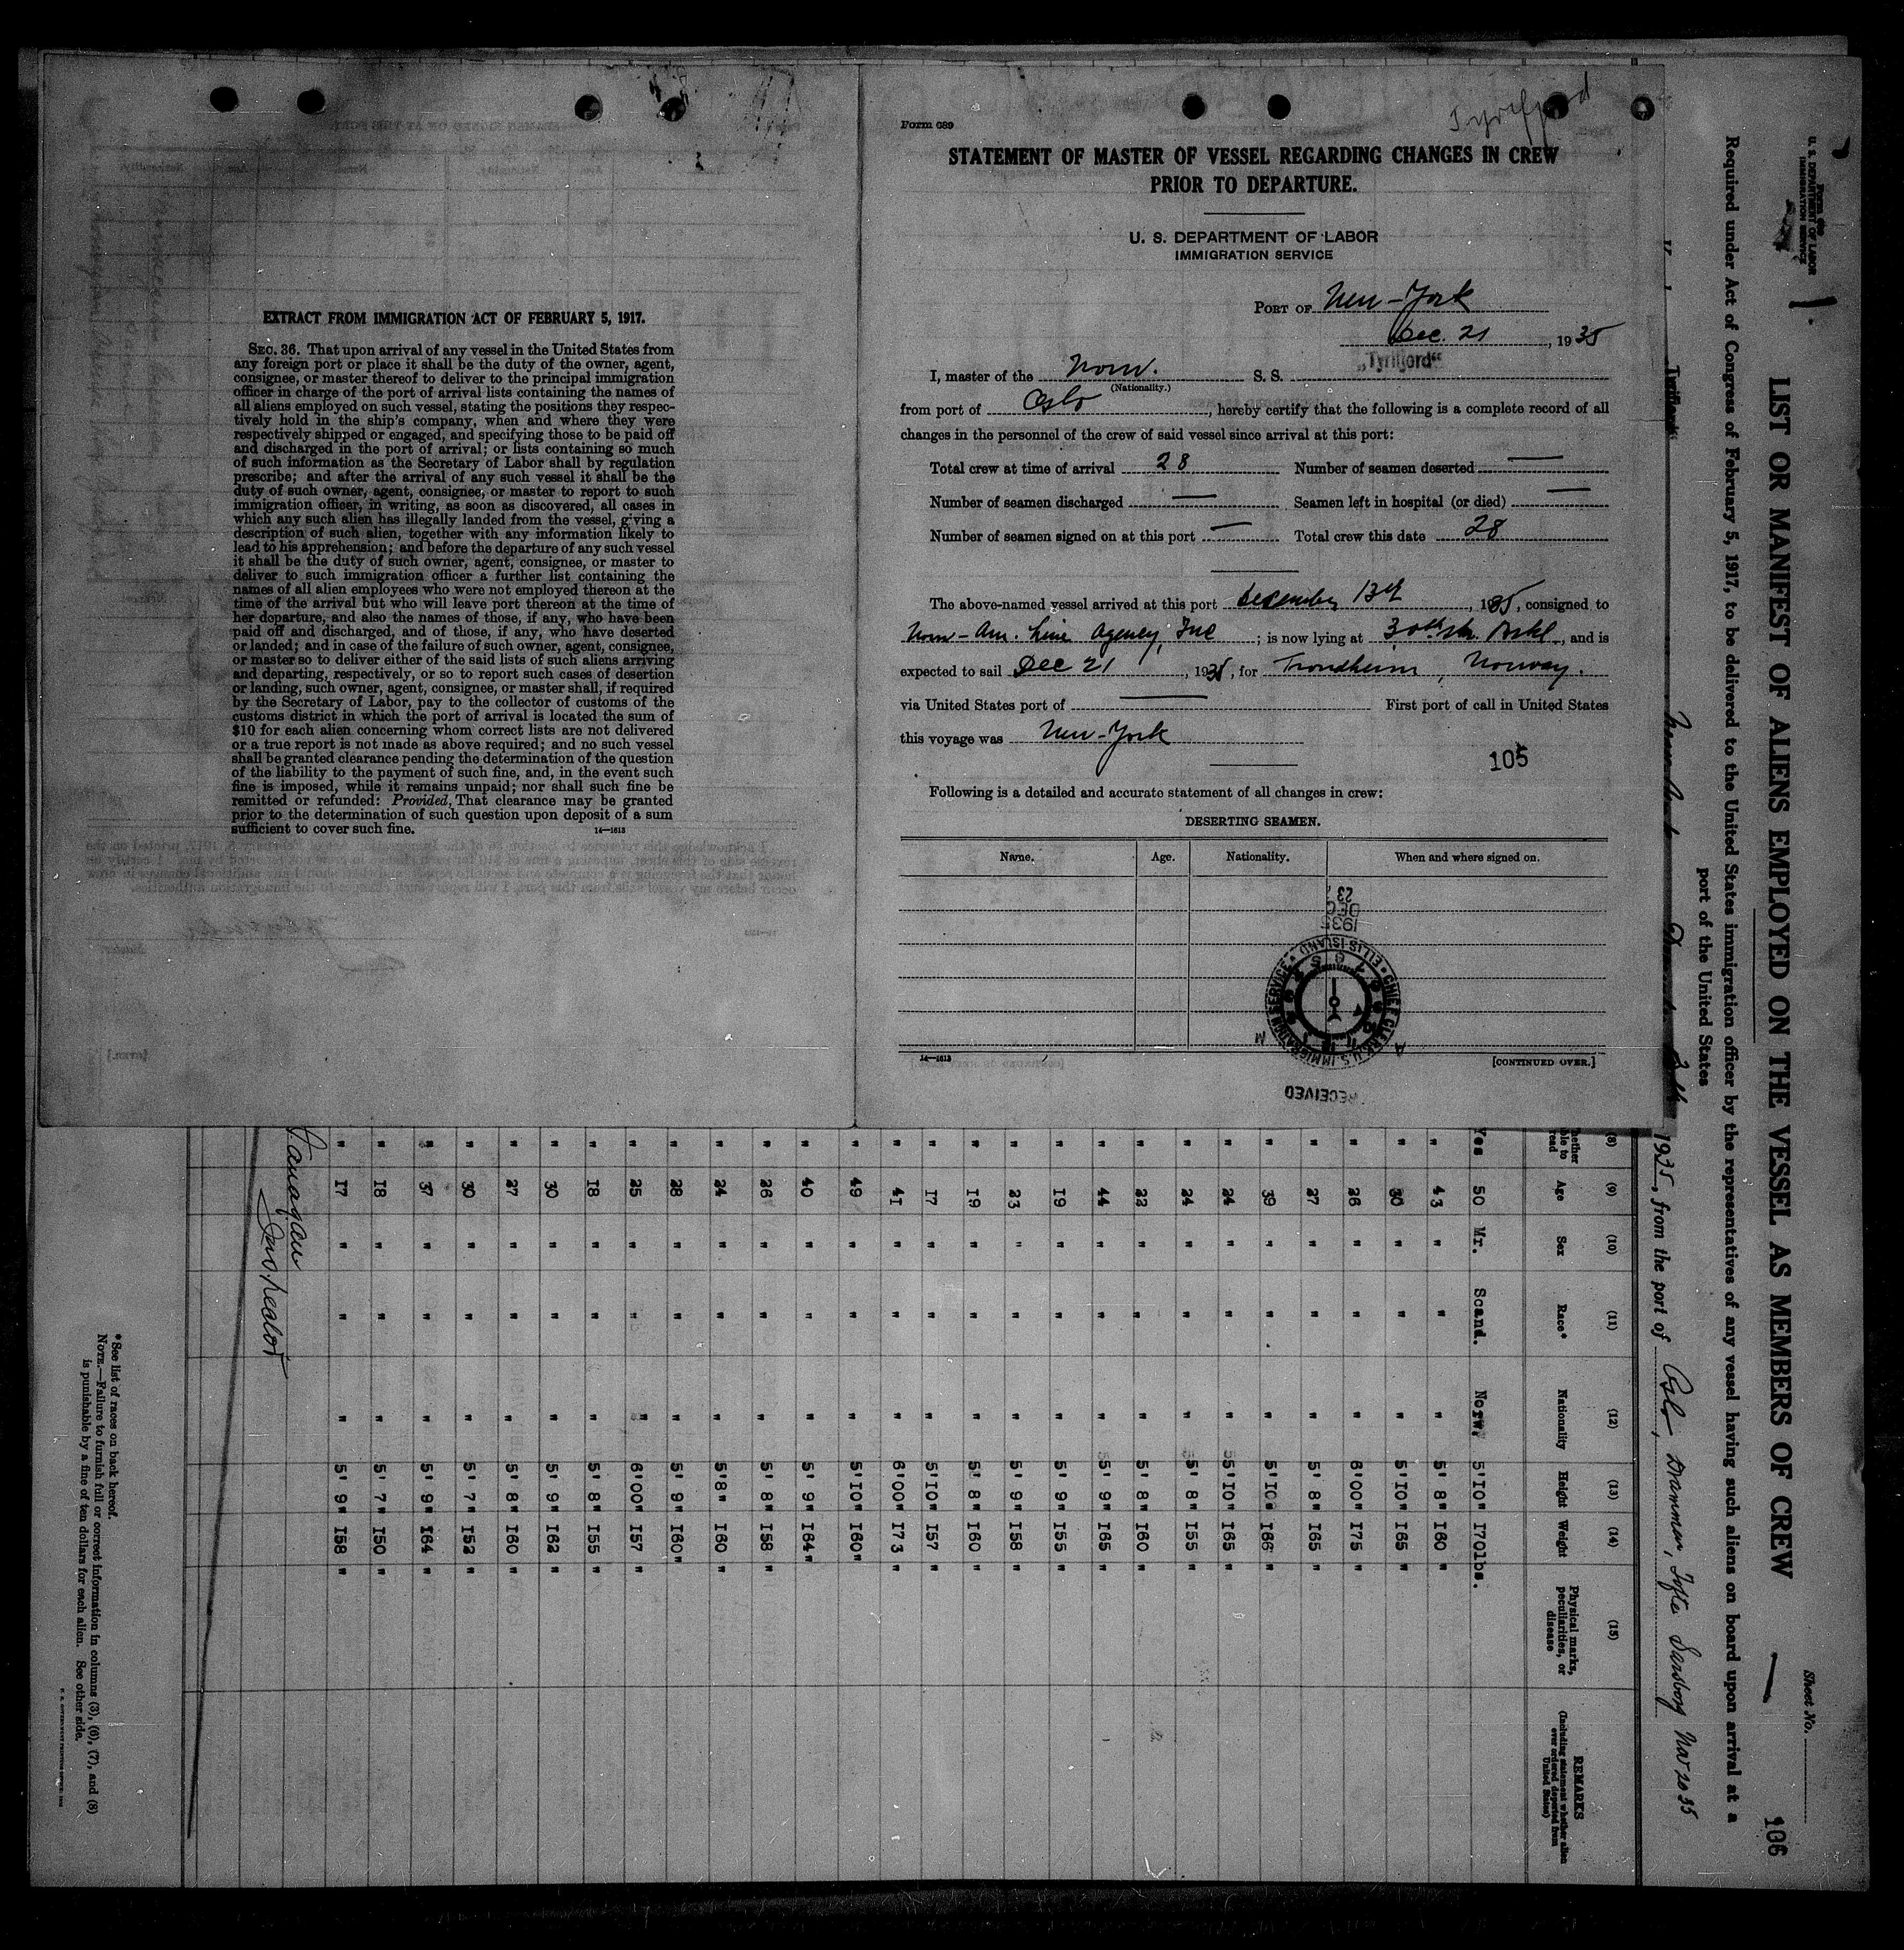 EXTRACT FROM IMMIGRATION ACT OF FEBRUARY 5, 1917.
SEC. 36. That upon arrival of any vessel in the United States from
any foreign port or place it shall be the duty of the owner, agent,
consignee, or master thereof to deliver to the principal immigration
officer in charge of the port of arrival lists containing the names of
all aliens employed on such vessel, stating the positions they respec-
tively hold in the ship's company, when and where they were
respectively shipped or engaged, and specifying those to be paid off
and discharged in the port of arrival; or lists containing so much
of such information as the Secretary of Labor shall by regulation
prescribe; and after the arrival of any such vessel it shall be the
duty of such owner, agent, consignee, or master to report to such
immigration officer, in writing, as soon as discovered, all cases in
which any such alien has illegally landed from the vessel, giving a
description of such alien, together with any information likely to
lead to his apprehension; and before the departure of any such vessel
it shall be the duty of such owner, agent, consignee, or master to
deliver to such immigration officer a further list containing the
names of all alien employees who were not employed thereon at the
time of the arrival but who will leave port thereon at the time of
her departure, and also the names of those, if any, who have been
paid off and discharged, and of those, if any, who have deserted
or landed; and in case of the failure of such owner, agent, consignee,
or master so to deliver either of the said lists of such aliens arriving
and departing, respectively, or so to report such cases of desertion
or landing, such owner, agent, consignee, or master shall, if required
by the Secretary of Labor, pay to the collector of customs of the
customs district in which the port of arrival is located the sum of
$10 for each alien concerning whom correct lists are not delivered
or a true report is not made as above required; and no such vessel
shall be granted clearance pending the determination of the question
of the liability to the payment of such fine, and, in the event such
fine is imposed, while it remains unpaid; nor shall such fine be
remitted or refunded: Provided, That clearance may be granted
prior to the determination of such question upon deposit of a sum
sufficient to cover such fine.
14—1613
Tyrifjord
Form 689
STATEMENT OF MASTER OF VESSEL REGARDING CHANGES IN CREW
PRIOR TO DEPARTURE.
U. S. DEPARTMENT OF LABOR
IMMIGRATION SERVICE
PORT OF New-York
Dec. 21, 1935
I, master of the Norw. S. S. „Tyrifjord“
(Nationality.)
from port of Oslo, hereby certify that the following is a complete record of all
changes in the personnel of the crew of said vessel since arrival at this port:
Total crew at time of arrival 28 Number of seamen deserted —
Number of seamen discharged — Seamen left in hospital (or died) —
Number of seamen signed on at this port — Total crew this date 28
The above-named vessel arrived at this port december 13th, 1935, consigned to
Norw-Am. Line Agency, Inc; is now lying at 30th str. Bskl, and is
expected to sail Dec 21, 1935, for Trondheim, Norway.
via United States port of — First port of call in United States
this voyage was New-York
105
Following is a detailed and accurate statement of all changes in crew:
DESERTING SEAMEN.
Name. Age. Nationality. When and where signed on.
RECEIVED
CHIEF CLERK U.S. IMMIGRATION SERVICE
ELLIS ISLAND
1935 DEC 23
A M
14—1613
[CONTINUED OVER.]
U. S. DEPARTMENT OF LABOR
IMMIGRATION SERVICE
Sheet No.
106
LIST OR MANIFEST OF ALIENS EMPLOYED ON THE VESSEL AS MEMBERS OF CREW
Required under Act of Congress of February 5, 1917, to be delivered to the United States immigration officer by the representatives of any vessel having such aliens on board upon arrival at a
port of the United States
1935, from the port of Oslo, Drammen, Tofte Sarsborg Nov 20 35
(8) (9) (10) (11) (12) (13) (14) (15)
Age Sex Race* Nationality Height Weight Physical marks, peculiarities, or disease REMARKS (Including statement whether alien ever ordered deported from United States)
Yes 50 Mr. Scand. Norw. 5'10" 170lbs.
" 43 " " " 5' 8" 160 "
" 30 " " " 5'10" 165 "
" 26 " " " 6'00" 175 "
" 27 " " " 5' 8" 165 "
" 39 " " " 5'10" 166 "
" 24 " " " 5'10" 165 "
" 24 " " " 5' 8" 155 "
" 22 " " " 5' 8" 160 "
" 44 " " " 5' 9" 165 "
" 19 " " " 5' 9" 155 "
" 23 " " " 5' 9" 158 "
" 19 " " " 5' 8" 160 "
" 17 " " " 5'10" 157 "
" 41 " " " 6'00" 173 "
" 49 " " " 5'10" 160"
" 40 " " " 5' 9" 164"
" 26 " " " 5' 8" 158 "
" 24 " " " 5'8" 160 "
" 28 " " " 5' 9" 160"
" 25 " " " 6'00" 157 "
" 18 " " " 5' 8" 155 "
" 30 " " " 5' 9" 162 "
" 27 " " " 5' 8" 160 "
" 30 " " " 5' 7" 152 "
" 37 " " " 5' 9" 164 "
" 18 " " " 5' 7" 150 "
" 17 " " " 5' 9" 158 "
Inspector
*See list of races on back hereof.
NOTE.—Failure to furnish full or correct information in columns (3), (6), (7), and (8)
is punishable by a fine of ten dollars for each alien. See other side.